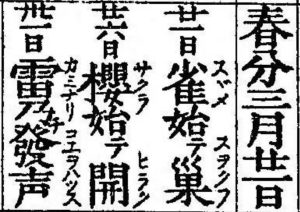 春分三月廿一日
廿一日 雀始テ巢
スヾメ スヲクフ
廿六日 櫻始テ開
サクラ ヒラク
卅一日 雷乃チ發声
カミナリ コエヲハツス